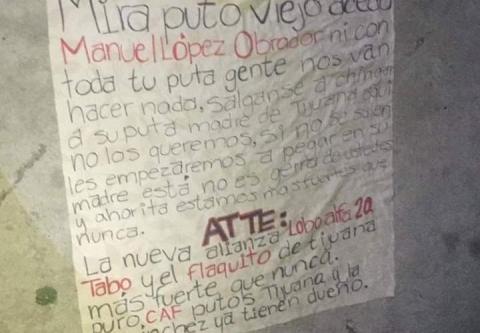 Mira puto viejo
Manuel López Obrador ni con
toda tu puta gente nos van
hacer nada, salganse a chingar
a su puta madre de Tijuana aqui
no los queremos, si no se salen
les empezaremos a pegar en su
madre está no es gerra de ustedes
y ahorita estamos mas fuertes que
nunca.
ATTE:
La nueva alianza Lobo alfa 20
Tabo y el flaquito de tijuana
más fuerte que nunca.
puro CAF putos Tijuana y la
ya tienen dueño.